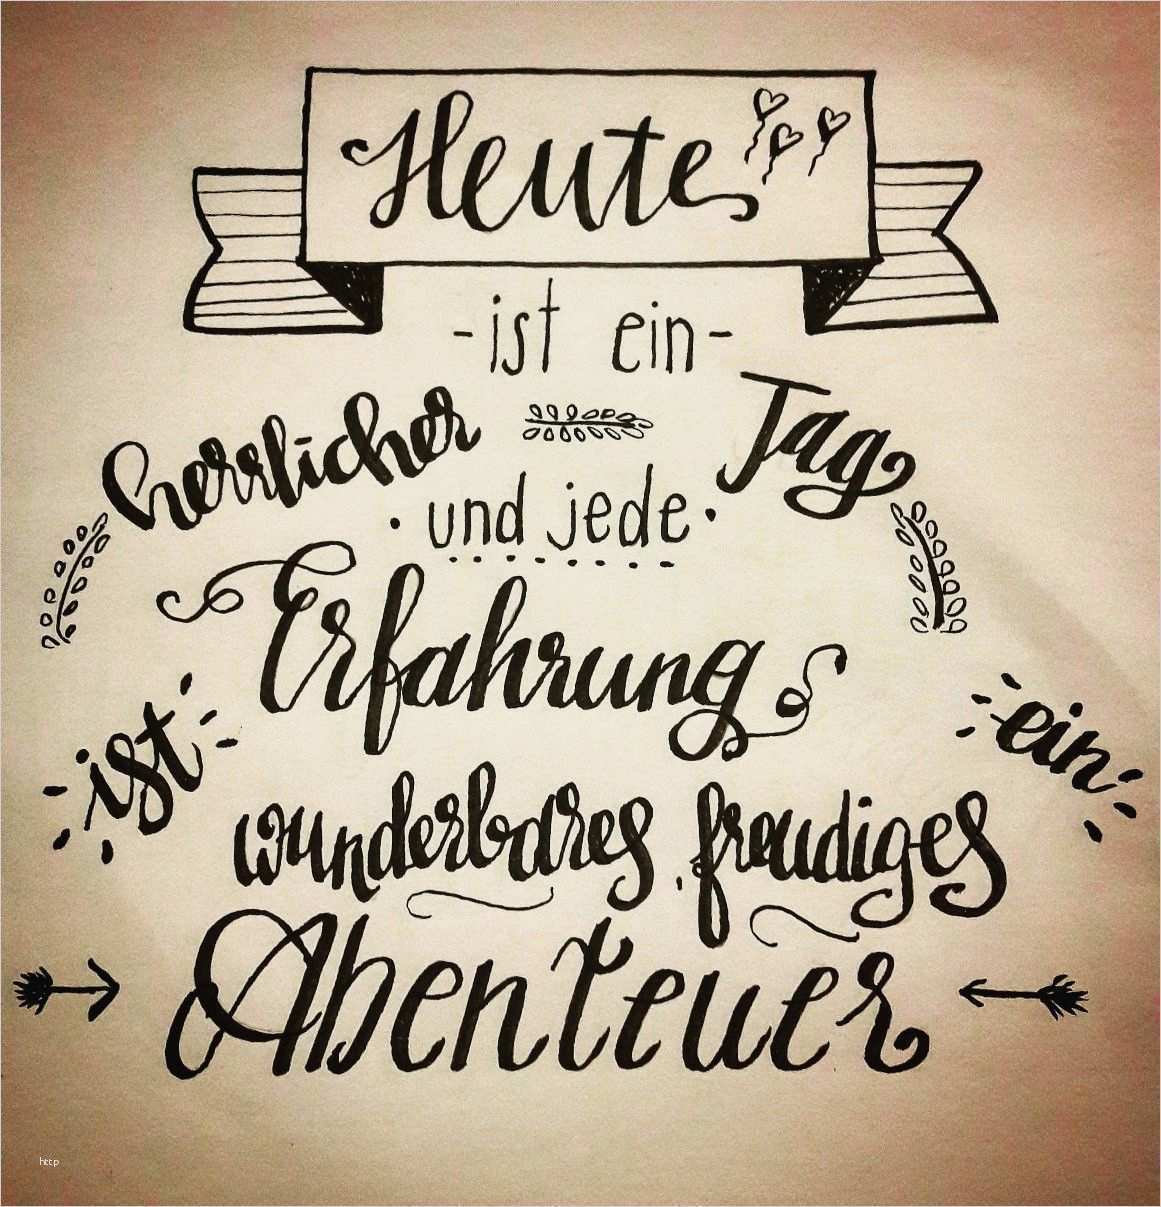 Heute
-ist ein-
herrlicher Tag
·und jede·
Erfahrung
ist ein
wunderbares, freudiges
Abenteuer
http